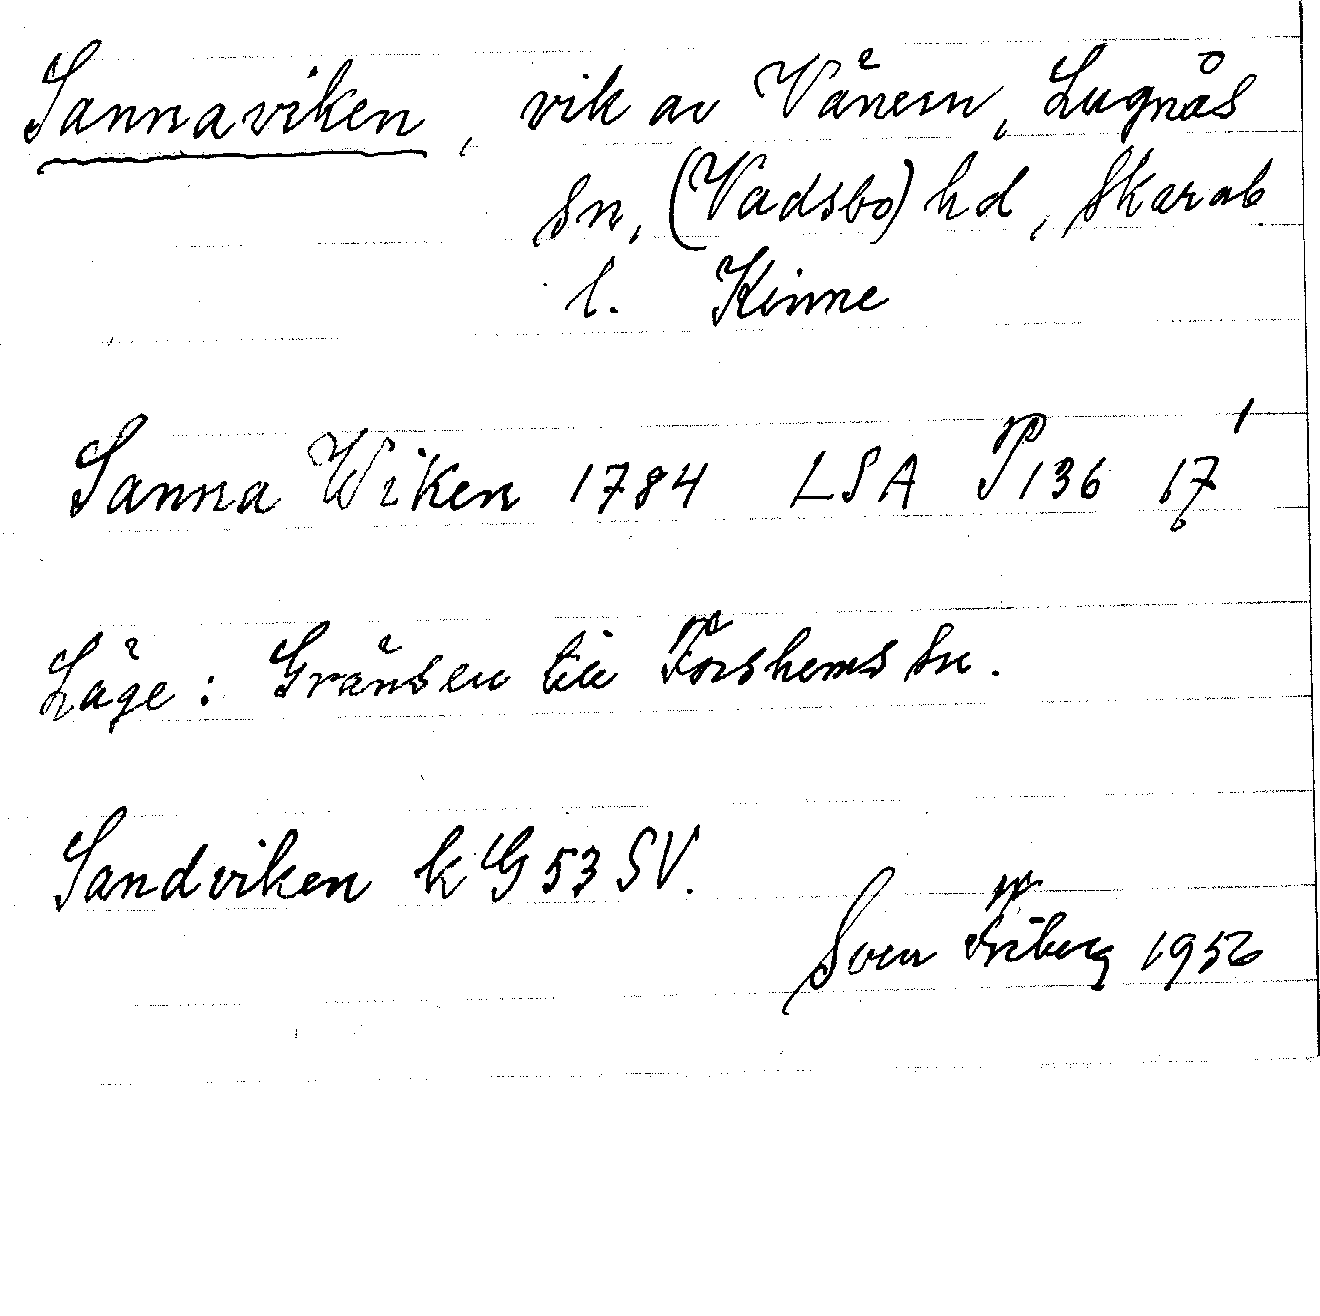 Sannaviken, vik av Vänern, Lugnås
sn, (Vadsbo) hd, Skarab.
l. Kinne
Sanna Wiken 1784 LSA P136
Läge: Gränsen till Forshems sn.
Sandviken k G 53 SV.
Sven Friberg 1956